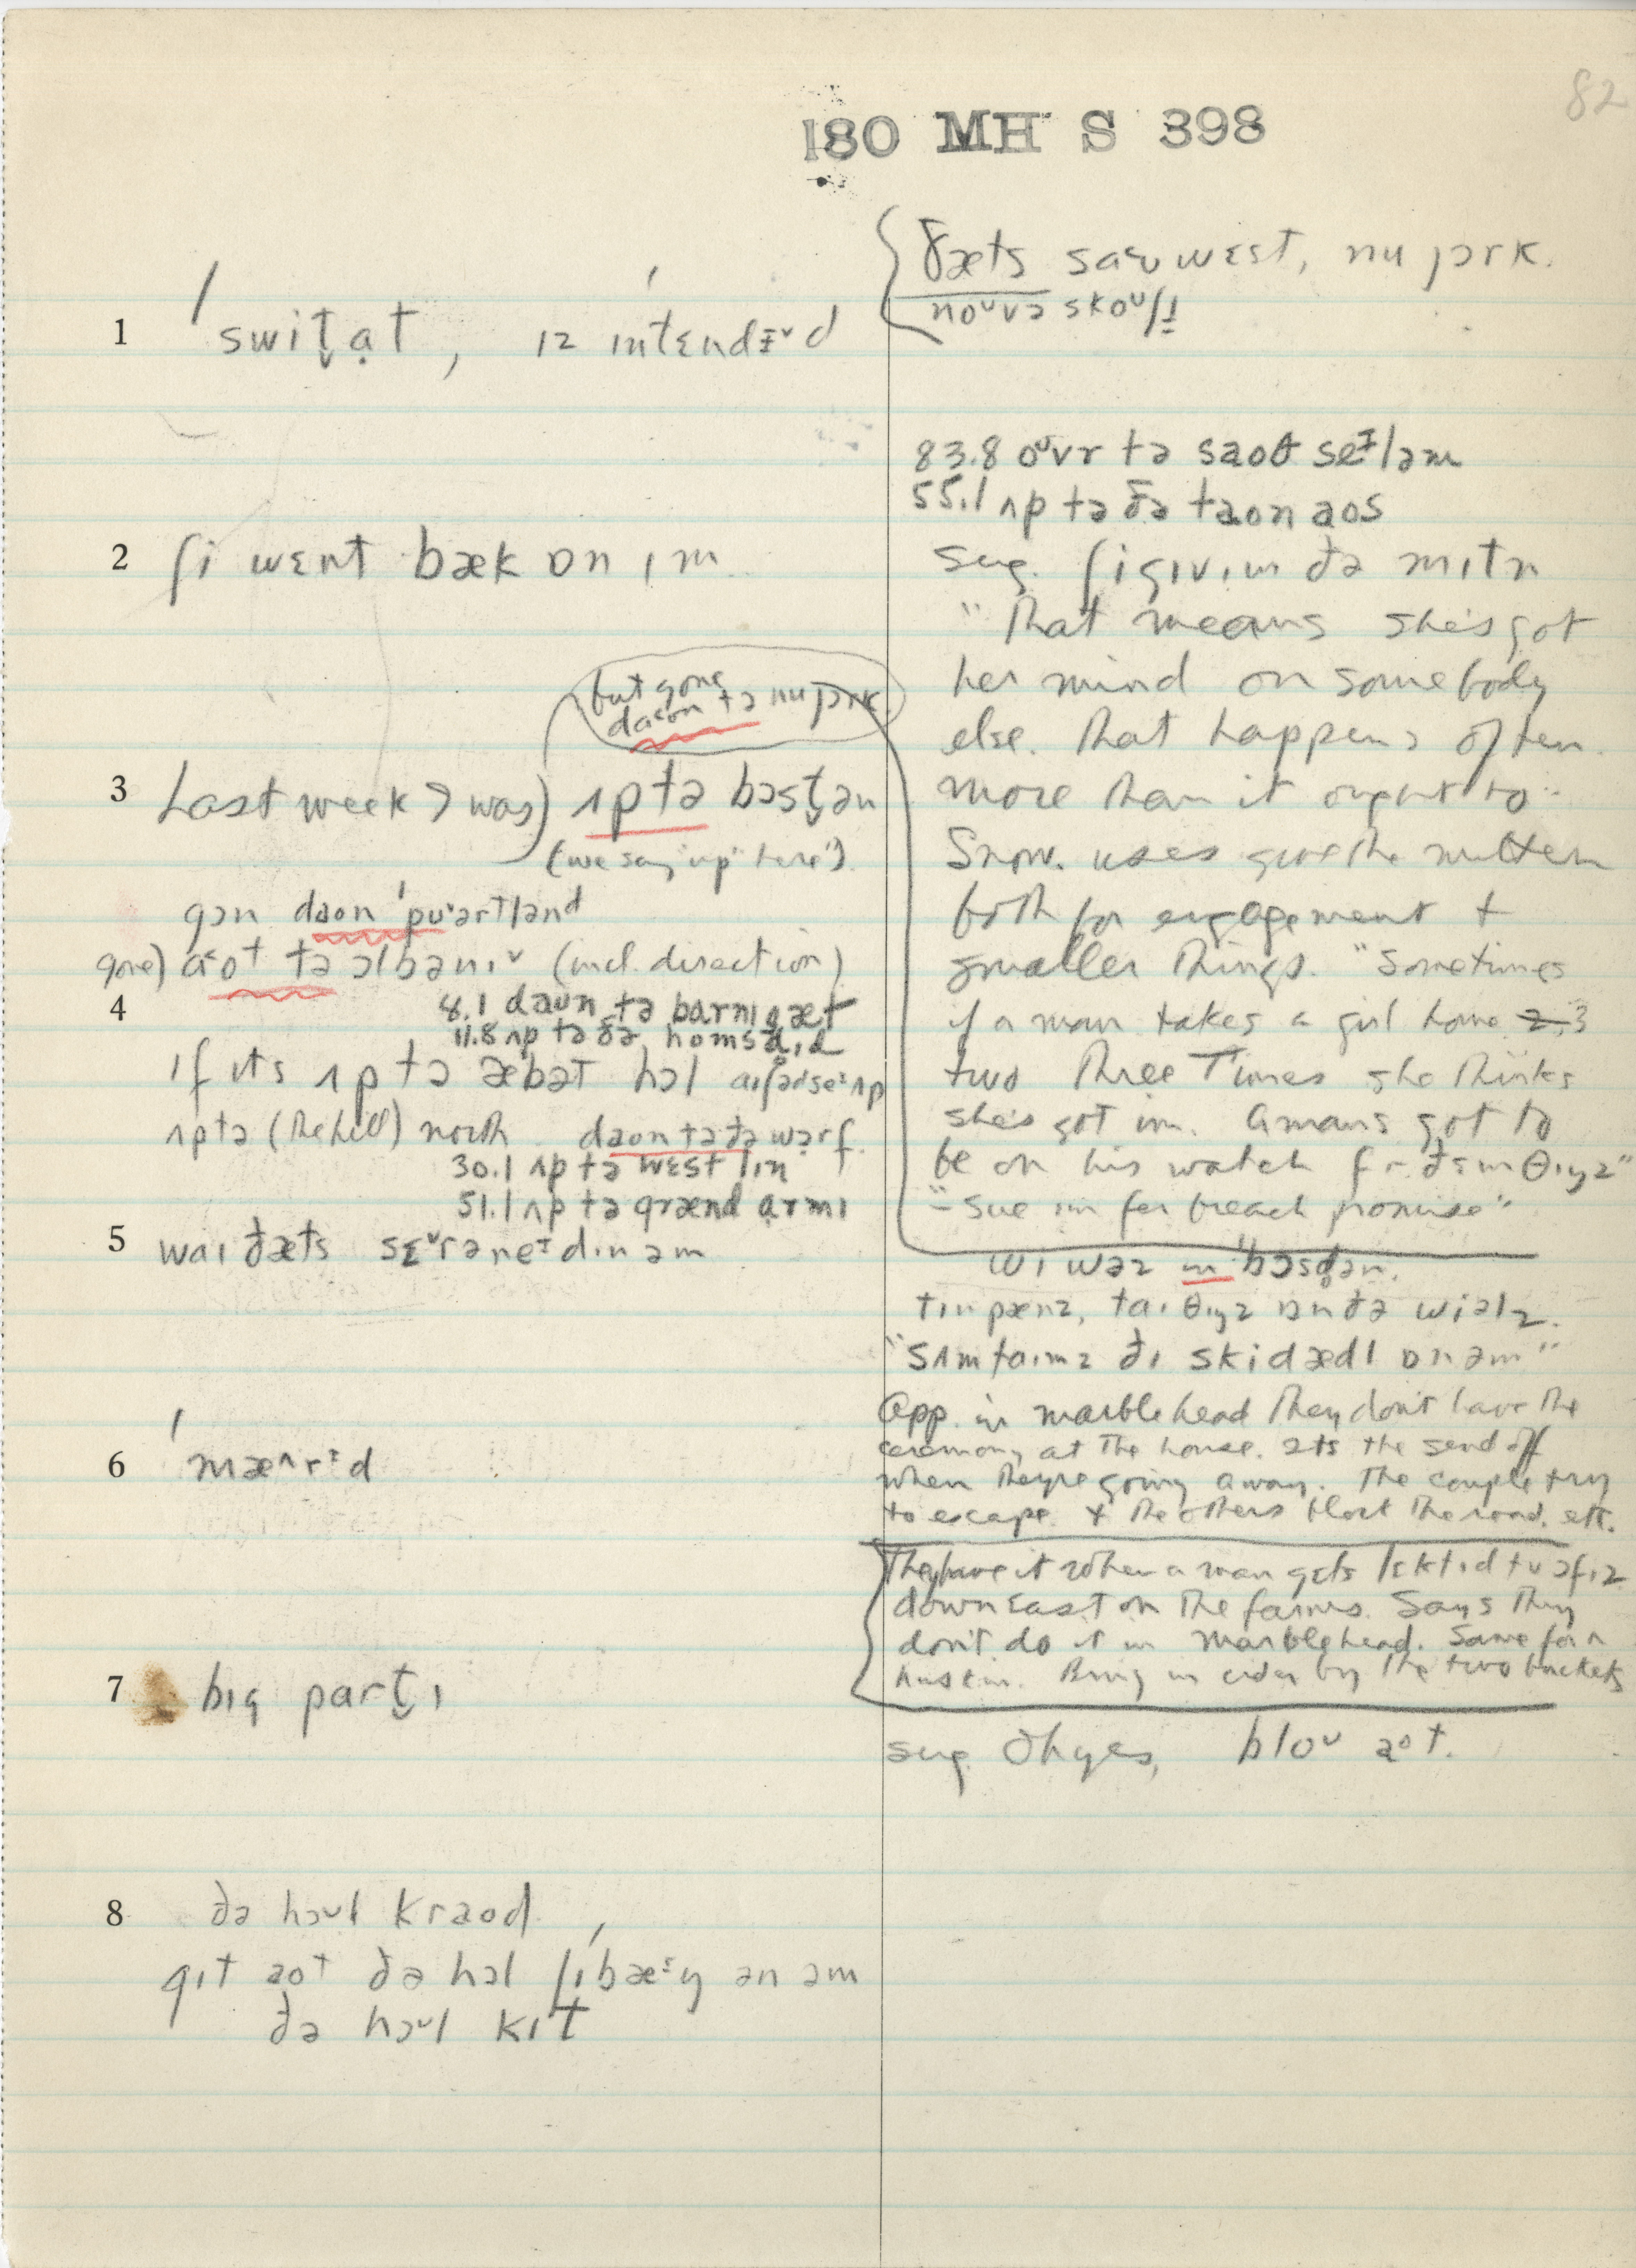 82
180 MH S 398
1 ˈswit̬ət, ɪz ɪnˈtɛndɪˇd
2 ʃi wɛnt bæk ɒn ɪm
but gone
daon tə nu jɔrk
3 Last week I was) ʌp tə bɔst̬ən
(we say "up" here)
gɔn daon ˈpʊərtlənd
gone) aot tə ɔlbənɪˇ (incl. direction)
4 8.1 daʊn tə barnɪgæt
11.8 ʌp tə ðə homstɪd
ɪf ɪts ʌp tə æbət hɔl
ʌp tə (the hill) north daon tə ðə wərf
30.1 ʌp tə wɛst lɪn
51.1 ʌp tə grænd armɪ
5 waɪ ðæts sɛˇrəneɪdɪn əm
6 ˈmæʌrɪd
7 bɪg part̬ɪ
8 ðə hɔʊl kraod
gɪt aot ðə hɔl ʃɪˈbæɪŋ ən əm
ðə hɔʊl kɪt
ðæts wɛst, nu jɔrk.
noʊvə skoʊʃɪ
83.8 oʊvr tə saoθ seɪləm
55.1 ʌp tə ðə taon aos
sug. ʃi gɪv ɪm ðə mɪtn
"That means she's got
her mind on somebody
else. That happens often
more than it ought to"
Snow. uses give the mitten
both for engagement +
smaller things. "Sometimes
if a man takes a girl home 2, 3
two three Times she thinks
she's got im. A man's got to
be on his watch fr ðɛm θɪŋz"
"Sue im fer breach promise"
wɪ wəz ɪn ˈbɔsd̥ən.
tɪn pænz, taɪ θɪŋz ɒn ðə wiəlz.
"sʌmtaɪmz ðɪ skidædl ɒn əm"
App. in marblehead they don't have the
ceremony at the house. Its the send off
when they're going away. The couple try
to escape & the others block the road. etc.
They have it when a man gets lɛktɪd tu ɔfɪz
down East on the farms. Says they
don't do it in Marblehead. Same for a
huskin. Bring in cider by the two buckets
sug. Oh yes, bloʊ aot.